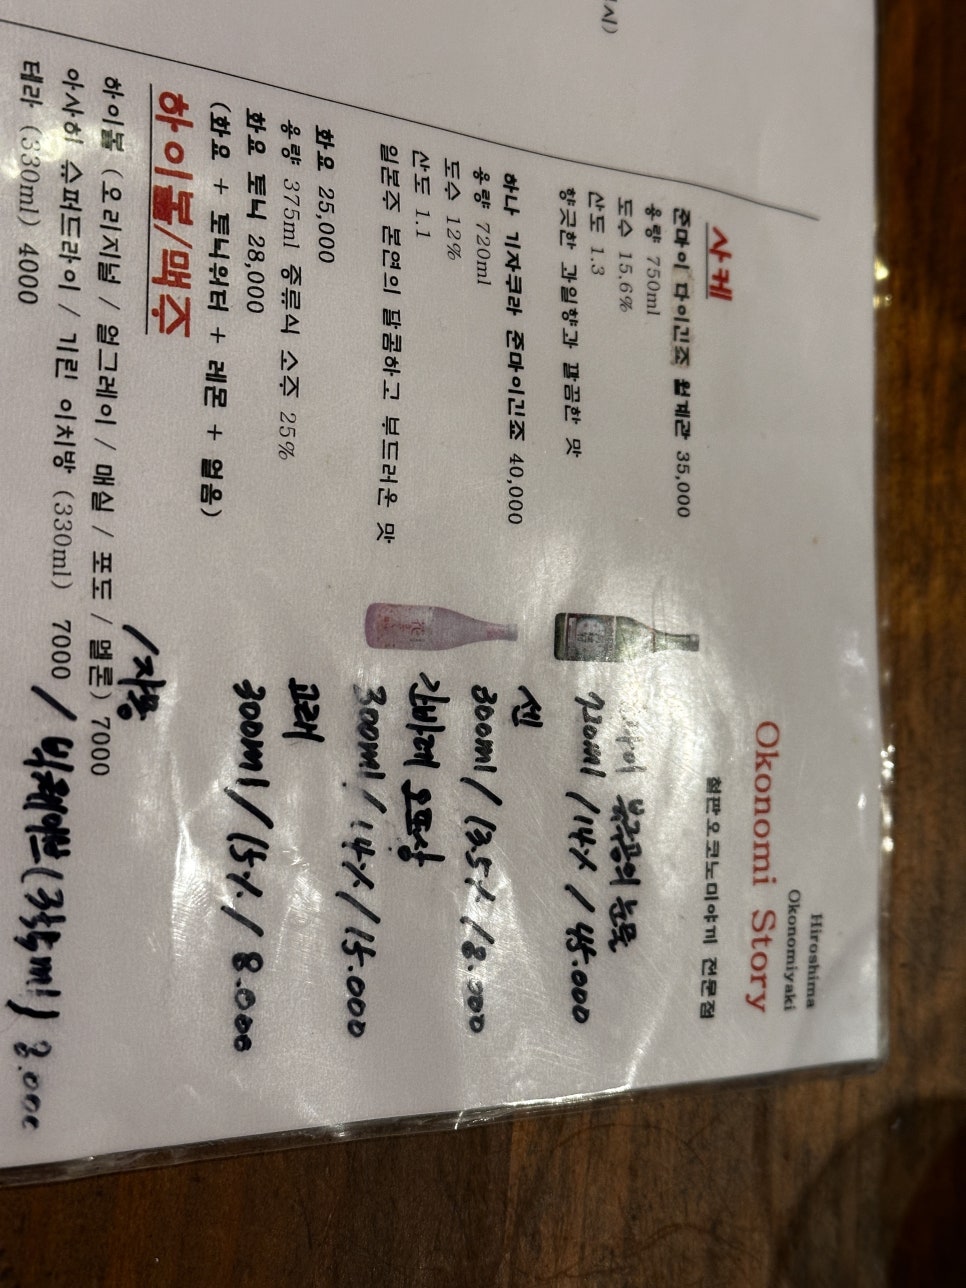 시)
Hiroshima
Okonomiyaki
Okonomi Story
철판오코노미야끼 전문점
사케
준마이 다이긴죠 월계관 35,000
용량 750ml
도수 15.6%
산도 1.3
향긋한 과일향과 깔끔한 맛
하나 기자쿠라 준마이긴죠 40,000
용량 720ml
도수 12%
산도 1.1
일본주 본연의 달콤하고 부드러운 맛
화요 25,000
용량 375ml 증류식 소주 25%
화요 토닉 28,000
(화요 + 토닉워터 + 레몬 + 얼음)
북극곰의 눈물
720ml / 14% / 45.000
센
300ml / 13.5% / 8.000
간바레 오또상
300ml / 14% / 15.000
고래
300ml / 15% / 8.000
하이볼/맥주
하이볼 (오리지날 / 얼그레이 / 매실 / 포도 / 멜론) 7000
/자몽
아사히 슈퍼드라이 / 기린 이치방 (330ml) 7000 / 빅웨이브 ml) 8.000
테라 (330ml) 4000